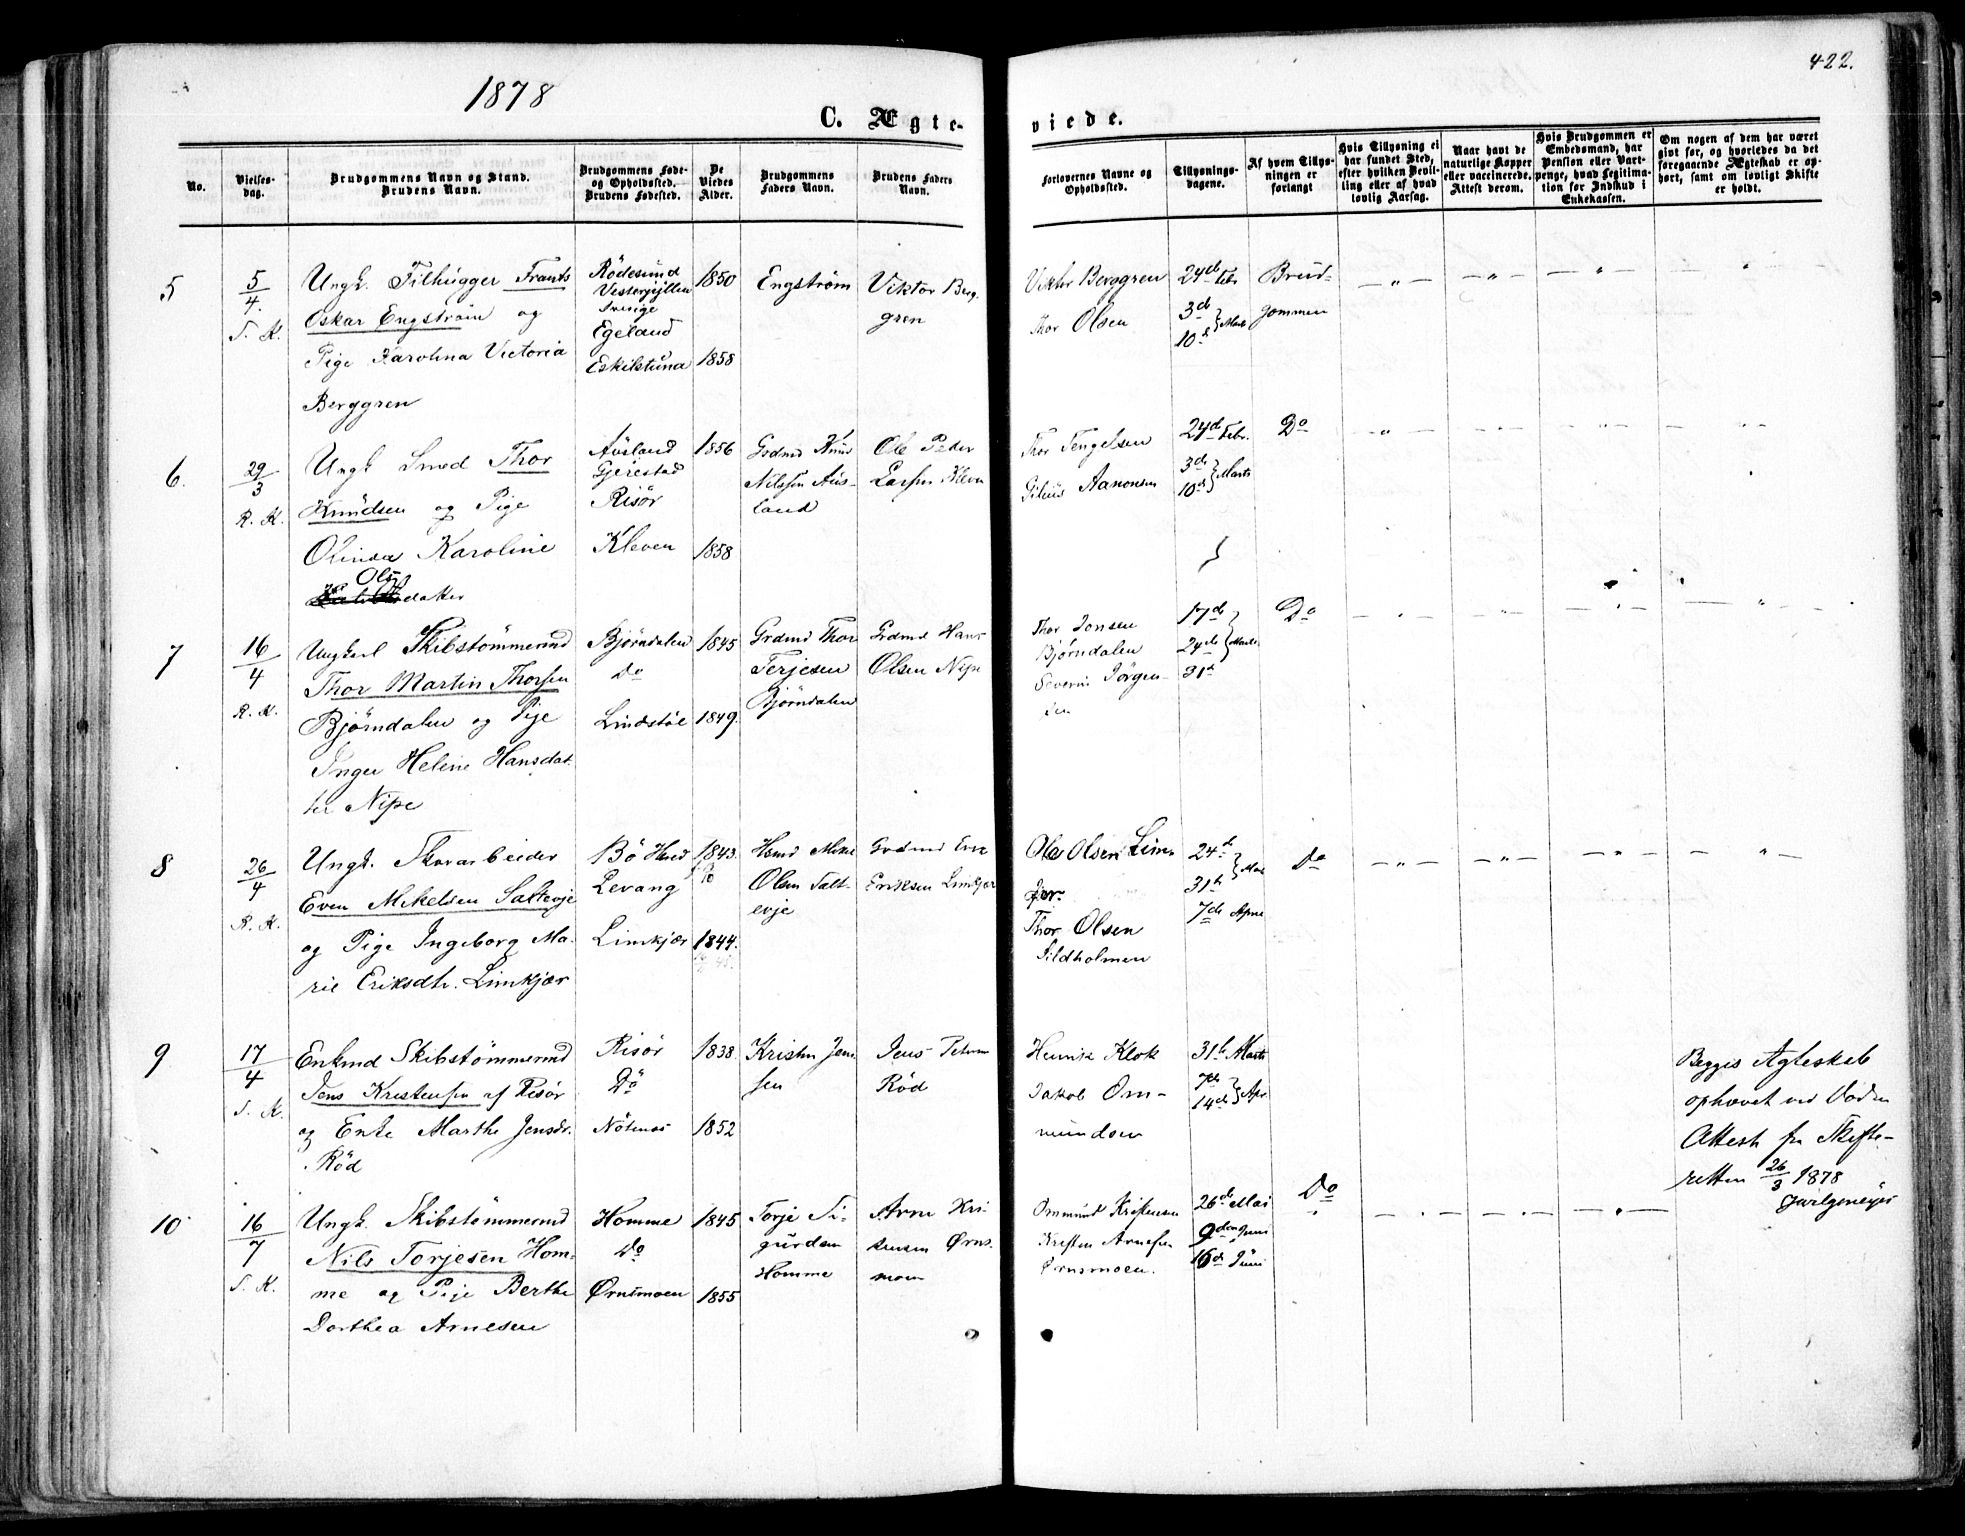 1878
422.
C. Ægte-
viede.
No.
Vielses-
dag.
Brudgommens Navn og Stand.
Brudens Navn.
Brudgommens Føde-
og Opholdssted.
Brudens Fødested.
De
Viedes
Alder.
Brudgommens
Faders Navn.
Brudens Faders
Navn.
Forlovernes Navne og
Opholdssted.
Tillysnings-
dagene.
Af hvem Tillys-
ningen er
forlangt
Hvis Tillysning ei
har fundet Sted,
efter hvilken Bevil-
ling eller af hvad
lovlig Aarsag.
Naar havt de
naturlige Kopper
eller vaccinerede.
Attest derom.
Hvis Brudgommen er
Embedsmand, har
Pension eller Vart-
penge, hvad Legitima-
tion for Indskud i
Enkekassen.
Om nogen af dem har været
gift før, og hvorledes da det
foregaaende Ægteskab er op-
hørt, samt om lovligt Skifte
er holdt.
5
5/4.
S. K.
Ungk. Filhugger Frants
Oskar Engström og
Pige Karolina Victoria
Berggren
Rödesund
Vestergyllen
Sverige
Egeland
Eskilstuna
1850
1858
Engström
Viktor Berg-
gren
Viktor Berggren
Thor Olsen
24de Febr
3de
10de } Marts
Brud-
gommen
6.
29/3
R. K.
Ungk Smed Thor
Knudsen og Pige
Olinda Karoline
Olsd
daker
Ausland
Gjerestad
Risör
Kleven
1856
1858
Grdmd Knud
Nilssen Aus-
land
Ole Peder
Larsen Kleven
Thor Tengelsen
Gilius Aanonsen
24de Febr.
3de
10de } Marts
Do
7
16/4
R. K.
Ungkarl Skibstömmermd
Thor Martin Thorsen
Bjørndalen og Pige
Inger Helene Hansdat-
ter Nipe
Bjørndalen
Do
Lindstöl
1845
1849.
Grdmd Thor
Terjesen
Bjørndalen
Grdmd Hans
Olsen Nipe
Thor Jonsen
Bjørndalen
Severin Jörgen-
sen
17de
24de } Marts
31te
Do
8
26/4
R. K.
Ungk. Skovarbeider
Even Mekelsen Saltevje
og Pige Ingeborg Ma-
rie Eriksdtr. Limkjær
Bö Hved
Levang
Limkjær
1843.
1844.
Hsmd Mekel
Olsen Salt-
evje
Grdmd Erik
Eriksen Limkjær
Ole Olsen Lim-
kjær.
Thor Olsen
Sildholmen
24de
31te } Mar
7de April
Do
9
17/4
S. K.
Enkmd Skibstömmermd
Jens Kristensen af Risör
og Enke Marthe Jensdr.
Röd
Risör
Do
Nötnes
1838.
1852
Kristen Jen-
sen
Jens Peterssen
Röd
Henrik Klok
Jakob Om-
mundsen
31te Marts
7de
14de } Apr.
Do
Begges Ægteskab
ophævet ved Döden
Attest fra Skifte-
retten 26/3 1878
10
16/7
S. K.
Ungk. Skibstömmermd
Nils Torjesen Hom-
me og Pige Berthe
Dorthea Arnesen
Homme
Do
Ørnsmoen
1845
1855
Torje Si-
gurdsen
Homme
Arne Kri-
stensen Ørns-
moen
Ommund Kristensen
Kristen Arnesen
Ørnsmoen.
26de Mai
9den Juni
16de Juni